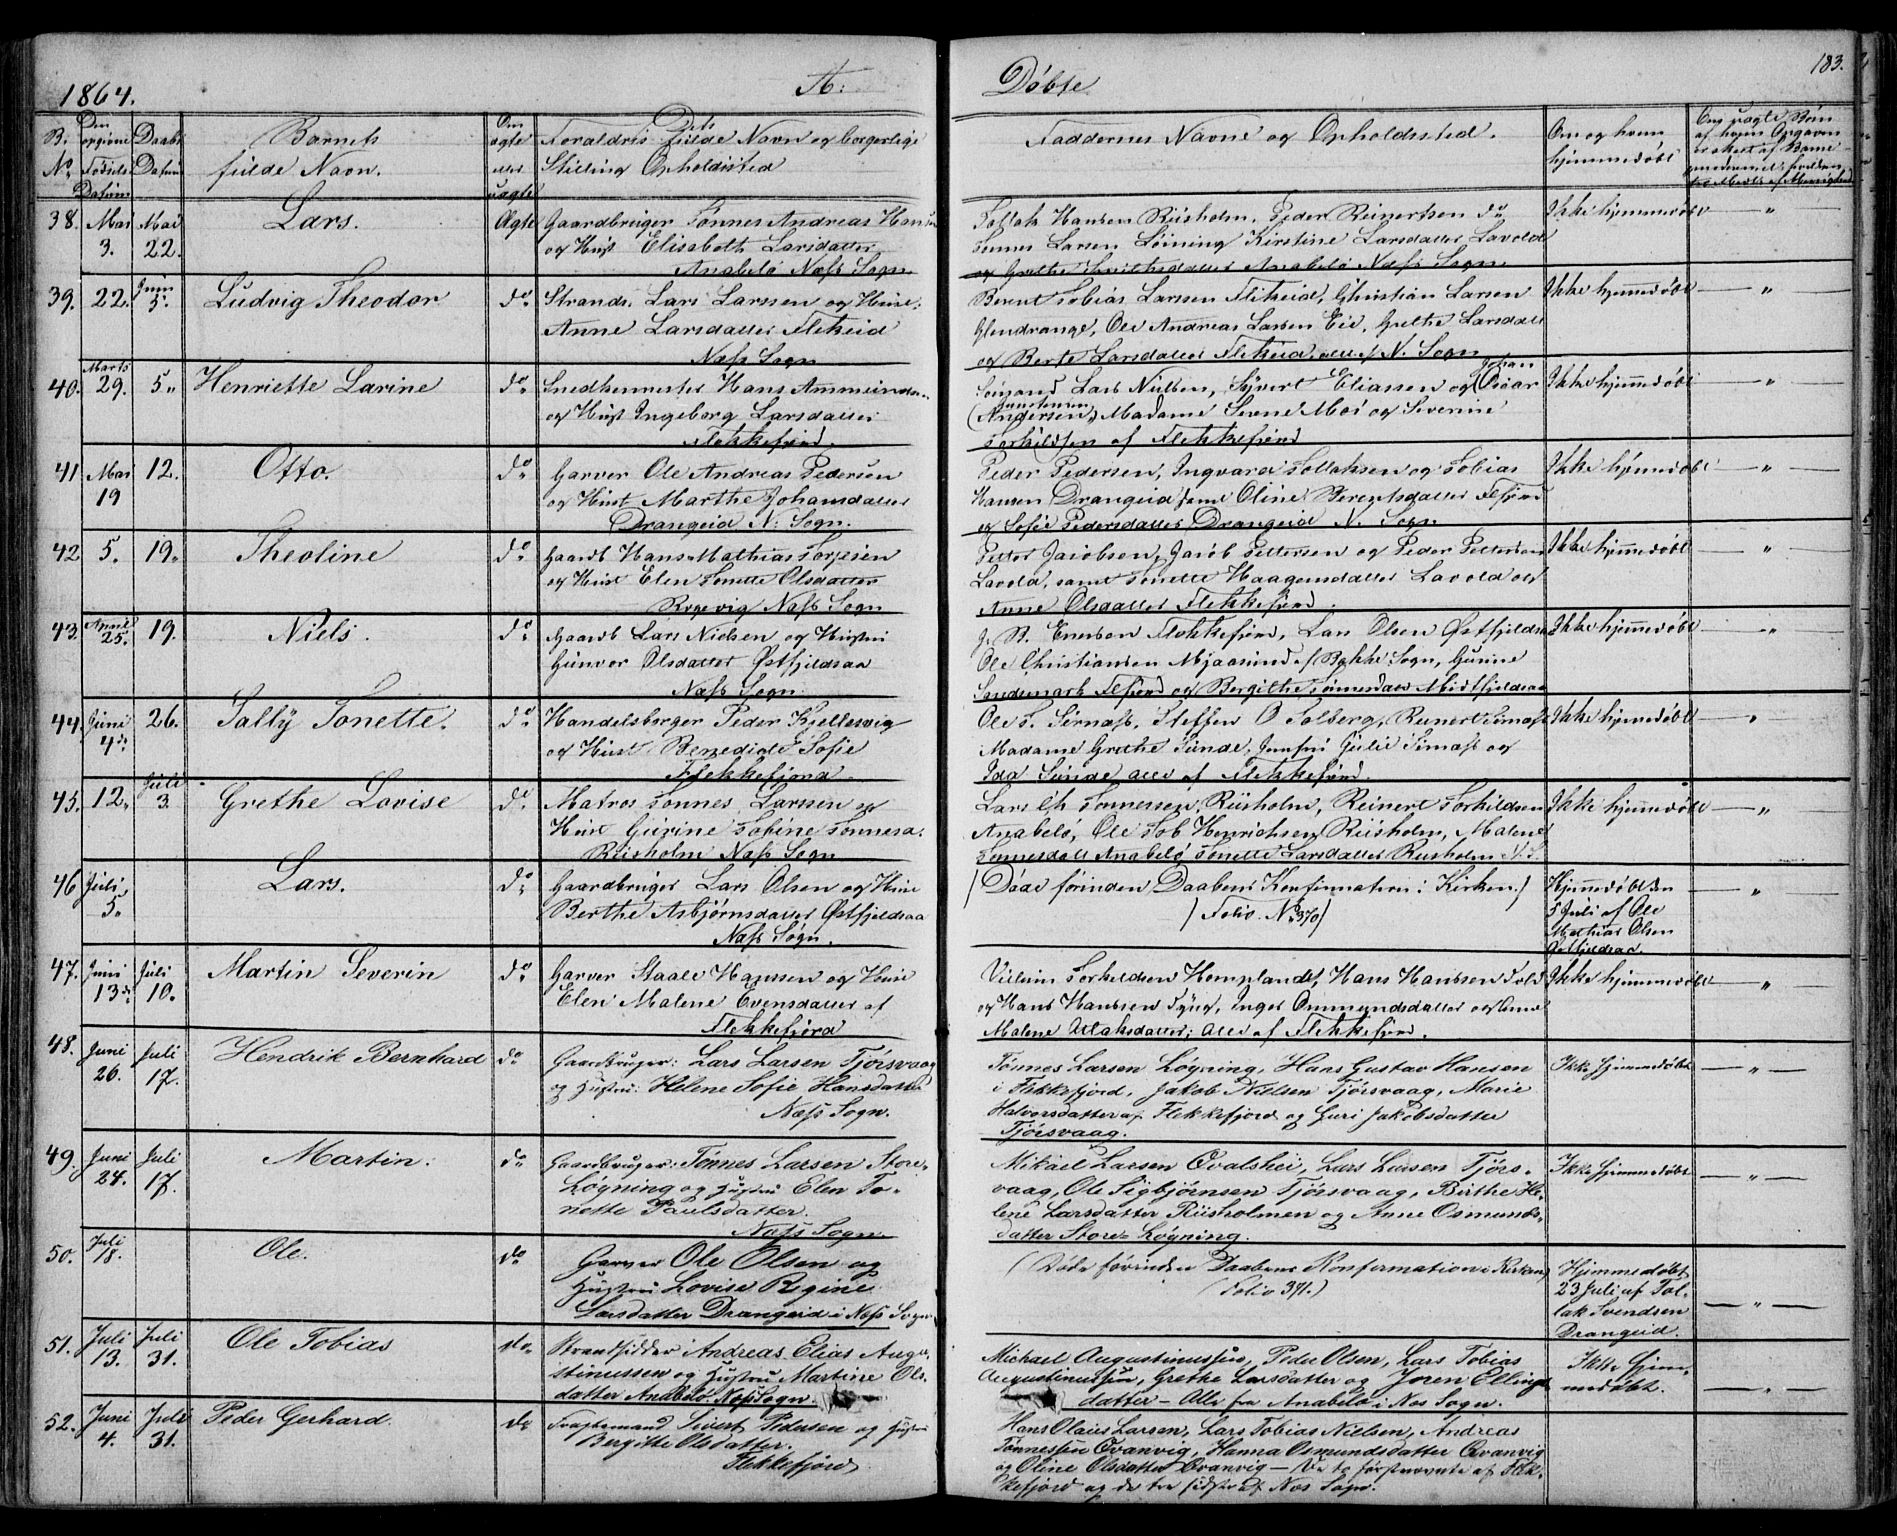 1864.
A:
Döbte
183.
B. No
Den opgivne Fødsels Datum
Daabs Datum
Barnets fulde Navn.
Om ægte eller uægte
Dets Forældres fulde Navn og borgerlige Stilling Opholdssted
Faddernes Navne og Opholdssted.
Om og hvem hjemmedøbt
38. Mai 3. Mai 22. Lars. Ægte Gaardbruger Tønnes Andreas Hansen
og Hust Elisabeth Larsdatter
Anabelö Næss Sogn
Tollak Hansen Riisholm, Peder Reinertsen do
Tønnes Larsen Löining Kirstine Larsdatter Lavold
og Grethe Anabelö Næss Sogn
Ikke hjemmedøbt — " —
39. 22. Juni 5. Ludvig Theodor do Strands. Lars Larssen og Hust.
Anne Larsdatter Flikeid
Næss Sogn
Bernt Tobias Larssen Flikeid, Christian Larsen
Glendrange, Ole Andreas Larsen Eie, Grethe Larsdatt
og Berte Larsdatter Flikeid, alle af N. Sogn
Ikke hjemmedøbt — " —
40. Marts 29. 5. Henriette Larine do Snedkermester Hans
og Hust Ingeborg Larsdatter
Flekkefjord.
Lars Nielsen, Syvert Eliassen og Johan Oscar
(Andersen) Madame og Severine
Torkildsen af Flekkefjord
Ikke hjemmedøbt — " —
41 Mai 19 12. Otto. do Garver Ole Andreas Pedersen
og Hust Marthe Johansdatter
Drangeid N: Sogn.
Peder Pedersen, Ingvard Tollaksen og Tobias
Hansen Drangeid samt Oline Berentsdatter Flfjord
og Sofie Pedersdatter Drangeid N. Sogn
Ikke hjemmedøbt — " —
42 5. 19. Theoline do Gaardb Hans Mathias Torjesen
og Hust Elen Tonette Olsdatter
Rogevig Næss Sogn
Petter Jacobsen, Jacob Pettersen og Peder Pettersen
Lavold, samt Tonette Haagensdatter Lavold og
Anne Olsdatter Flekkefjord.
Ikke hjemmedøbt — " —
43. April 25. 19. Niels. do Gaardb Lars Nielsen og Hustru
Gunvor Olsdatter Østfjeldsaa
Næss Sogn
J. B. Flekkefjord, Lars Olsen Østfjeldsaa
Ole Christiansen Mjaasund af Bakke Sogn, Gurine
Flfjord og Bergithe Tønnesdatr Midtfjeldsaa
Ikke hjemmedøbt — " —
44. Juni 4. 26. Sally Tonette. do Handelsborger Peder Kjellesvig
og Hust Benedicte Sofie
Flekkefjord.
Ole T. Sirnæss, Steffen O Solberg, Reinert Sirnæss
Madame Grethe Sunde, Jomfru Julie Sirnæss og
Ida Sunde alle af Flekkefjord.
Ikke hjemmedøbt — " —
45. 12. Juli 3. Grethe Lovise do Matros Tønnes Larssen og
Hust Gurine Tobine Tønnesd.
Riisholm Næss Sogn
Lars Ch Tønnessen Riisholm, Reinert Torkildsen
Anabelö, Ole Tob Henrichsen Riisholm, Malene
Tønnesdatt Anabelö Tonette Larsdatter Riisholm N. S.
Ikke hjemmedøbt — " —
46 Juli 5. Lars. do Gaardbruger Lars Olsen og Hust
Berthe Asbjørnsdatter Østfjeldsaa
Næss Sogn.
(Døde førinden Daabens Konfirmation i Kirken.)
(Folio No 370)
Hjemmedøbt den
5 Juli af Ole
Mathias Olsen
Østfjeldsaa.
— " —
47. Juni 13. Juli 10. Martin Severin do Garver Staale Hansen og Hust
Elen Malene Evensdatter af
Flekkefjord
Villum Torkildsen Hompland, Hans Hansen Told
og Hans Hansen Inger Ommundsdatter og Anne
Malene Atlaksdatter; Alle af Flekkefjord.
Ikke hjemmedøbt — " —
48. Juni 26. Juli 17. Hendrik Bernhard do Gaardbruger: Lars Larsen Tjörsvaag
og Hustru: Helene Sofie Hansdatter
Næss Sogn.
Tønnes Larsen Løgning, Hans Gustav Hansen
i Flekkefjord, Jakob Nielsen Tjörsvaag, Marie
Halvorsdatter af Flekkefjord og Guri Jakobsdatter
Tjörsvaag.
Ikke hjemmedøbt — " —
49. Juni 24. Juli 17. Martin. do Gaardbruger: Tønnes Larsen Store-
Løgning og Hustru Elen To-
nette Paulsdatter.
Næss Sogn.
Mikael Larsen Ovalshei, Lars Larsen Tjörs-
vaag, Ole Sigbjørnsen Tjörsvaag, Birthe He-
lene Larsdatter Riisholmen og Anne Osmunds-
datter Store-Løgning.
Ikke hjemmedøbt — " —
50. Juli 18. Ole. do Garver Ole Olsen og
Hustru Lovise Regine
Larsdatter Drangeid i Næss Sogn
(Døde førinden Daabens Konfirmation i Kirken
(Folio 371.)
Hjemmedøbt
23 Juli af Tol-
lak Svendsen
Drangeid.
— " —
51. Juli 13. Juli 31. Ole Tobias do Strandsidder Andreas Elias Augu-
stinussen og Hustru Martine Ols-
datter Anabelö. Næss Sogn.
Michael Augustinussen, Peder Olsen, Lars Tobias
Augustinussen, Grethe Larsdatter og Joren Ellings
datter — Alle fra Anabelö i Nes Sogn.
Ikke hjem-
medøbt.
— " —
52. Juni 4. Juli 31. Peder Gerhard. do Fragtemand Sivert Pedersen og Hustru
Bergitte Olsdatter.
Flekkefjord
Hans Olaus Larsen, Lars Tobias Nielsen, Andreas
Tønnessen Qvanvig, Hanna Osmundsdatter Qvanvig
og Oline Olsdatter Qvanvig — De to førstnevnte af Flek-
kefjord og de tre sidste af Nes Sogn.